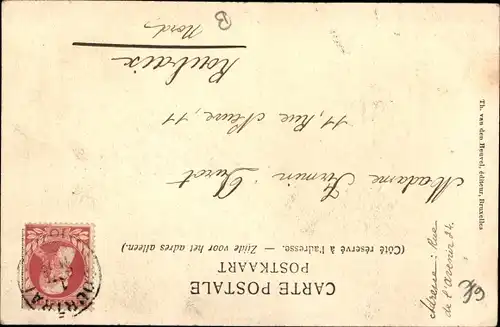 CARTE POSTALE
POSTKAART
(Côté réservé à l'adresse. — Zijde voor het adres alleen.)
Madame Firmin Durot
11, Rue Neuve, 11
Roubaix
Nord
B
Th. van den Heuvel, éditeur, Bruxelles
Adresse: Rue
de l'